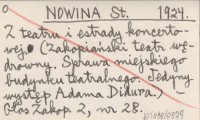 o NOWINA St. 1924.
Z teatru i estrady koncerto-
wej. (Zakopiański teatr wę-
drowny. Sprawa miejskiego
budynku teatralnego. Jedyny
występ Adama Didura.)
Głos Zakop. 2, nr 28.